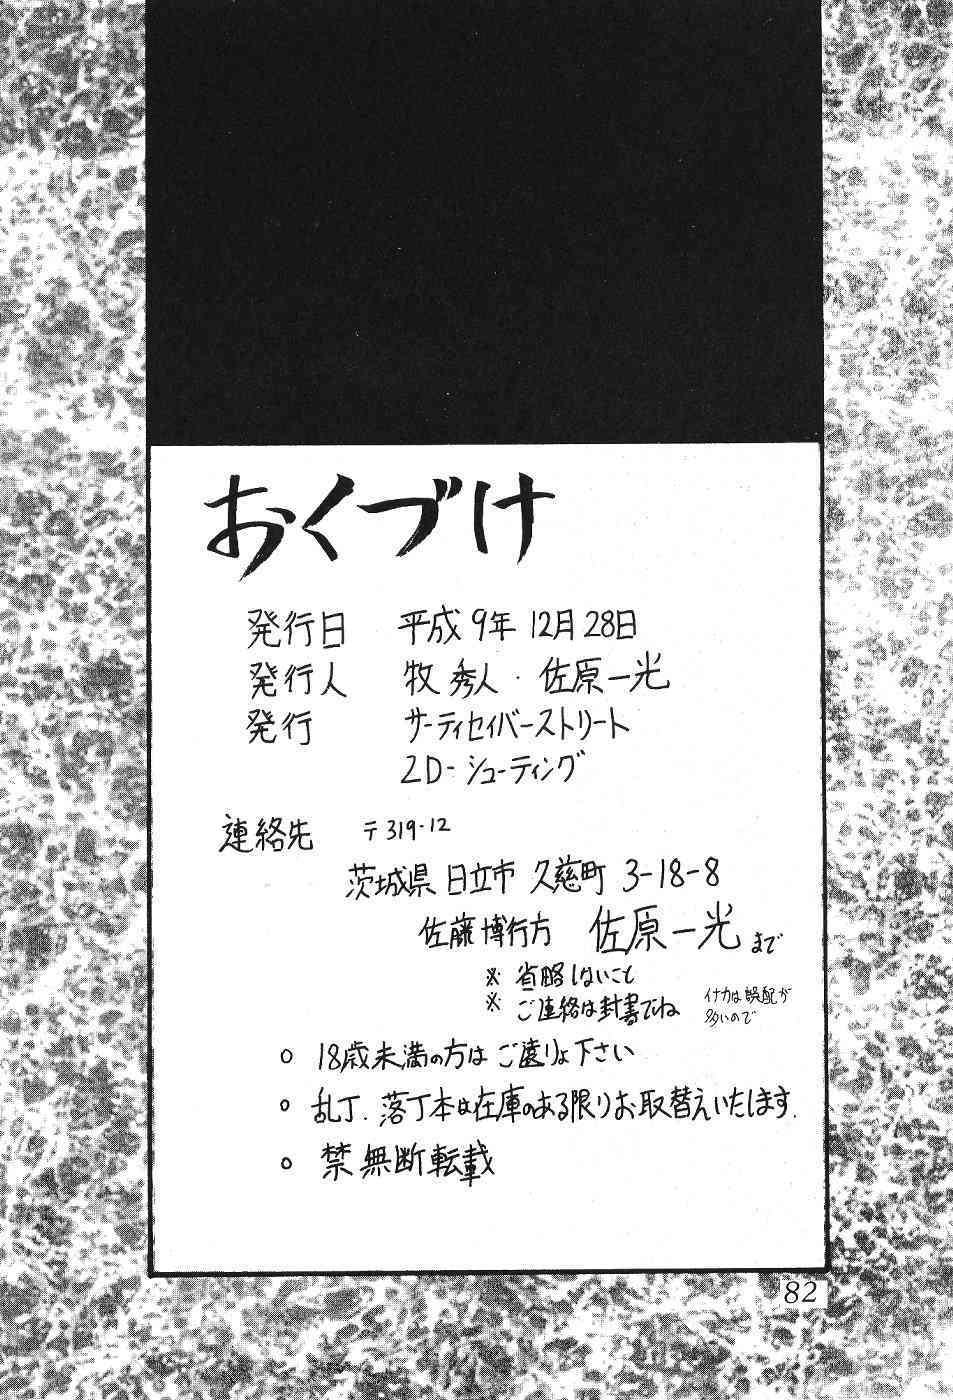 おくづけ
発行日 平成9年12月28日
発行人 牧 秀人・佐原一光
発行 サーティセイバーストリート
2D-シューティング
連絡先 〒319-12
茨城県 日立市 久慈町 3-18-8
佐藤 博行方 佐原一光 まで
※ 省略しないこと
※ ご連絡は封書でね イナカは誤配が
多いので
○ 18歳未満の方は ご遠りょ下さい
○ 乱丁、落丁本は在庫のある限りお取替えいたします.
○ 禁無断転載
82